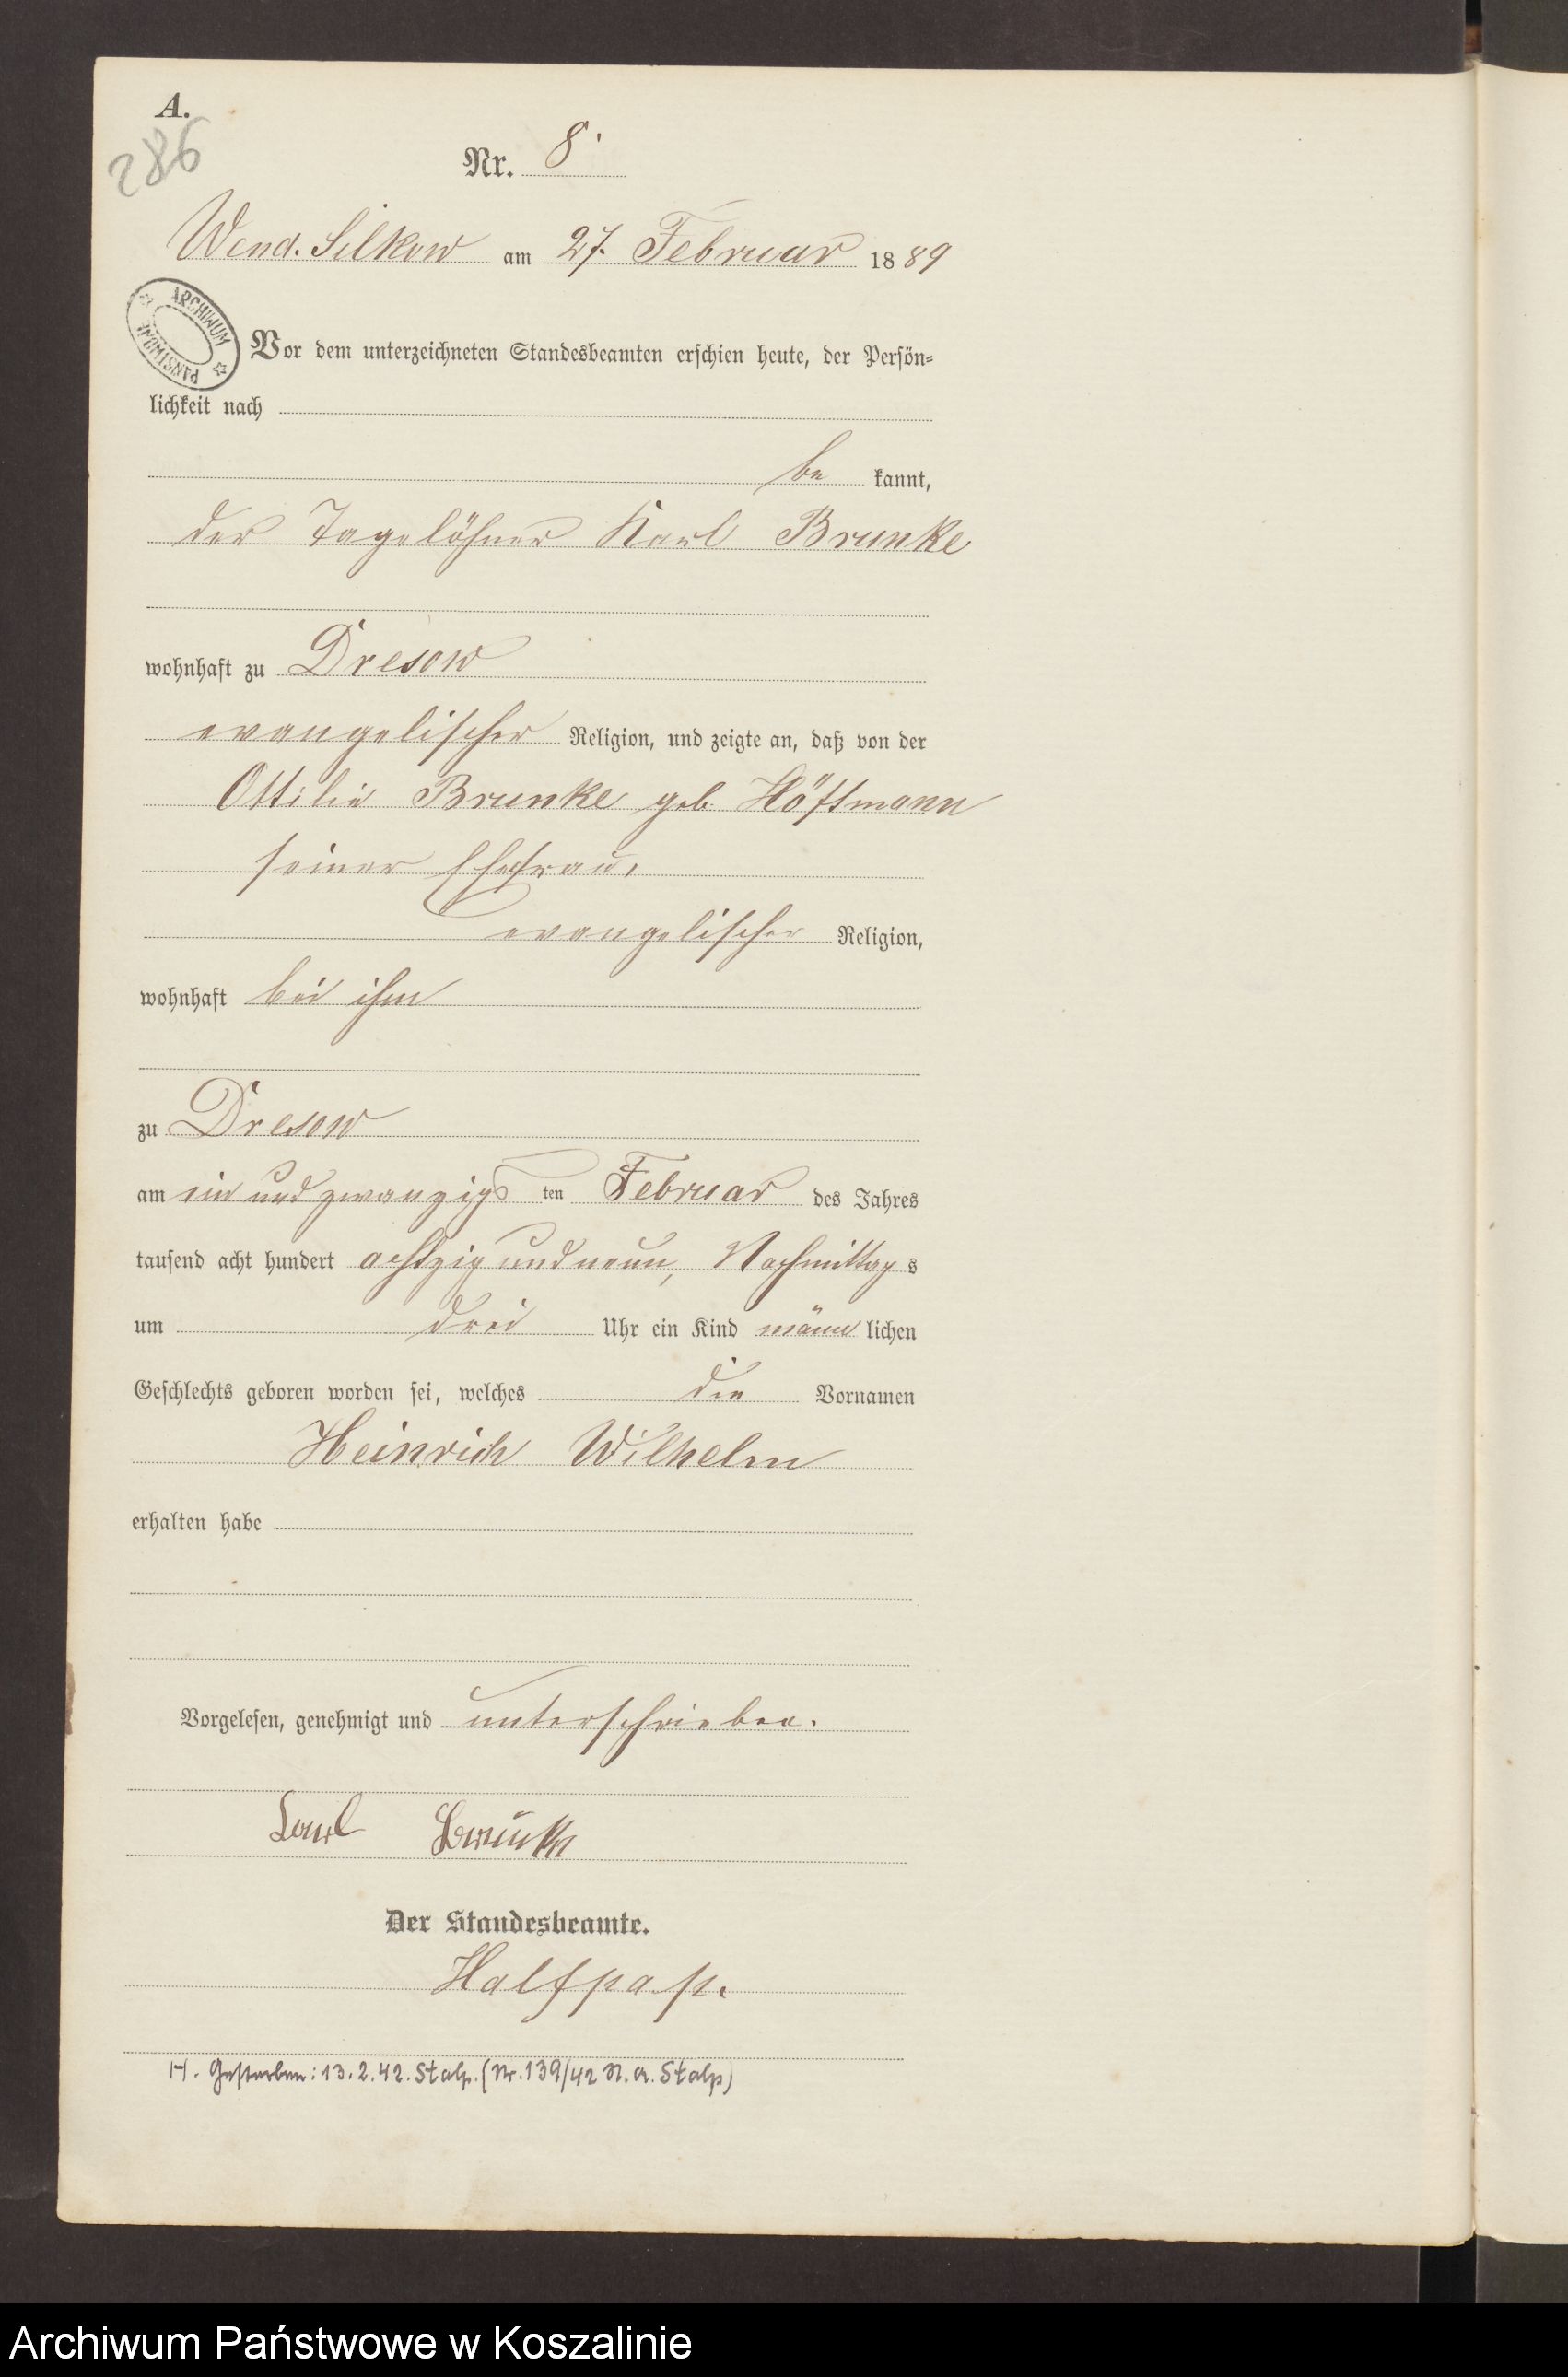 A.
286
Nr. 8.
Wend. Silkow am 27. Februar 1889
ARCHIWUM PAŃSTWOWE
Vor dem unterzeichneten Standesbeamten erschien heute, der Persön-
lichkeit nach
be kannt,
der Tagelöhner Karl Brunke
wohnhaft zu Dresow
evangelischer Religion, und zeigte an, daß von der
Ottilie Brunke geb. Höftmann
seiner Ehefrau,
evangelischer Religion,
wohnhaft bei ihm
zu Dresow
am ein und zwanzigs ten Februar des Jahres
tausend acht hundert achtzig und neun, Nachmittag s
um drei Uhr ein Kind männ lichen
Geschlechts geboren worden sei, welches die Vornamen
Heinrich Wilhelm
erhalten habe
Vorgelesen, genehmigt und unterschrieben.
Carl Brunke
Der Standesbeamte.
Halfpap.
H. Gestorben: 13.2.42. Stolp. (Nr. 139/42 St. A. Stolp)
Archiwum Państwowe w Koszalinie